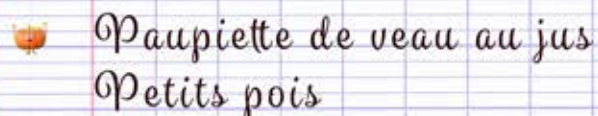 Paupiette de veau au jus
Petits pois